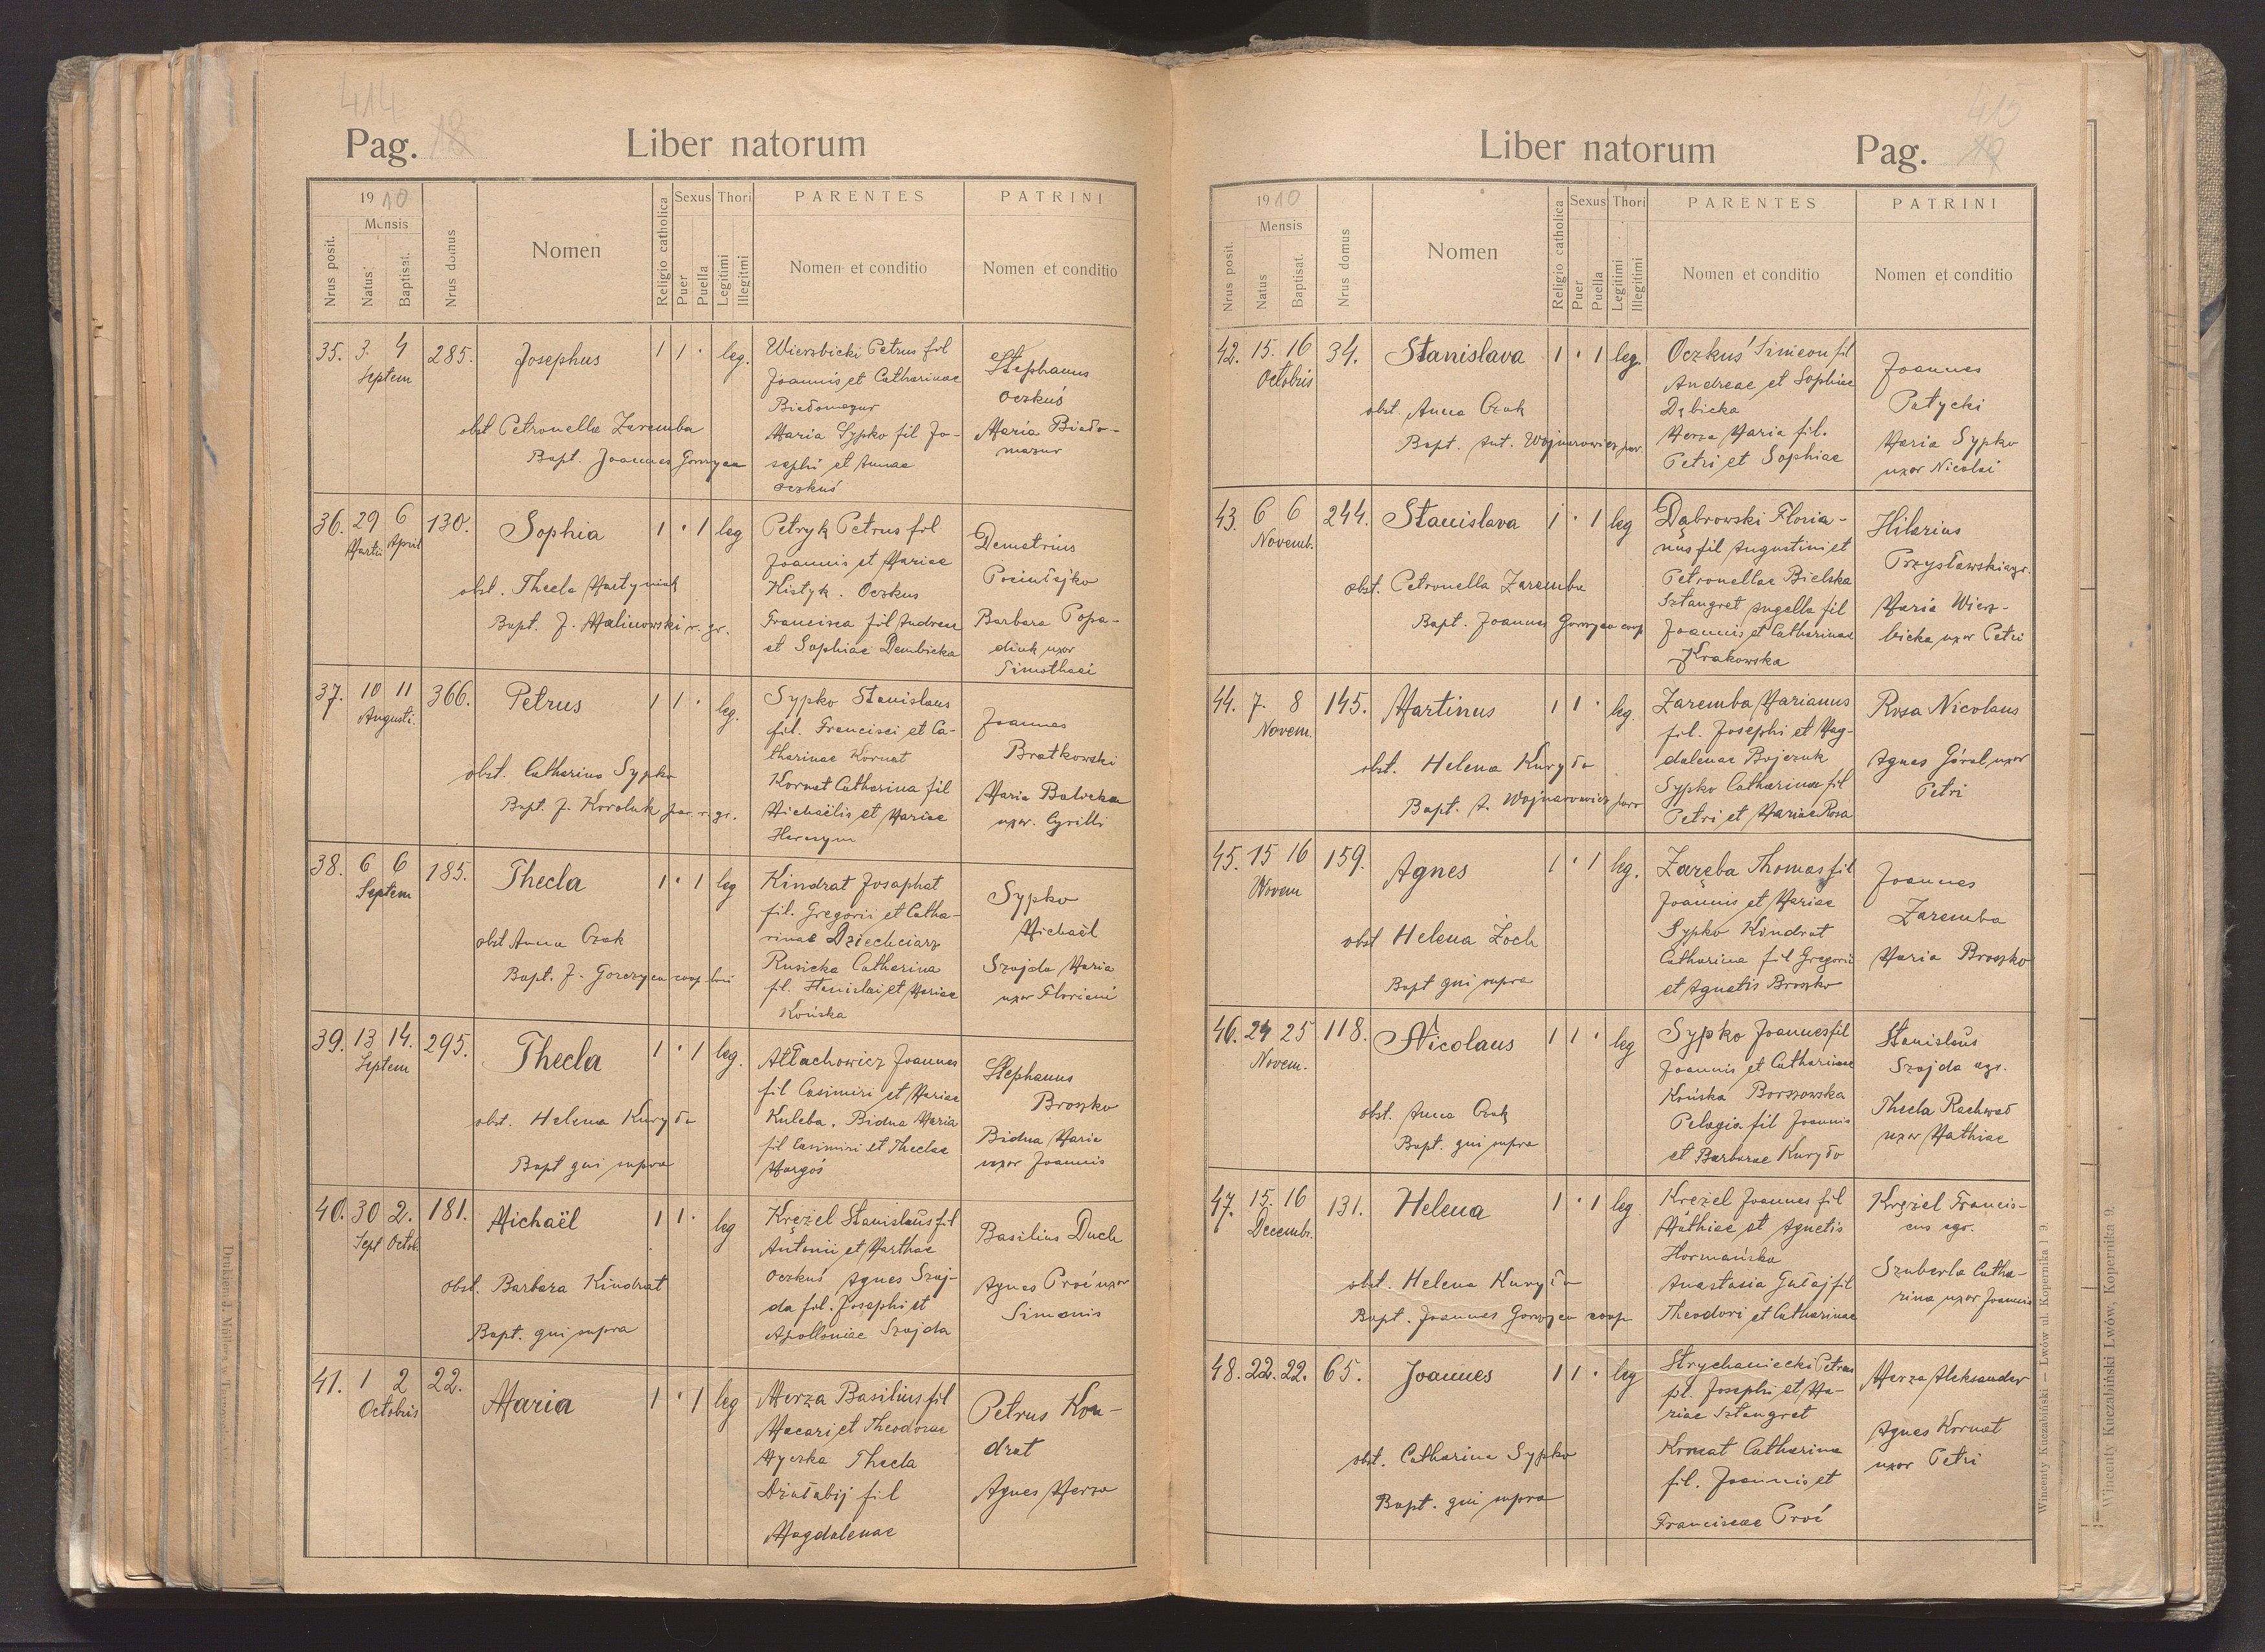 414
Pag. 18
Liber natorum
1910
Mensis
Nrus posit.
Natus
Baptisat.
Nrus domus
Nomen
Religio catholica
Sexus
Puer
Puella
Thori
Legitimi
Illegitmi
PARENTES
Nomen et conditio
PATRINI
Nomen et conditio
35. 3. 4 Septem 285. Josephus 1 1 · leg.
obst Petronella Zaremba
Bapt. Joannes Gorzyca
Wierzbicki Petrus fil
Joannis et Catharinae
Białomazur
Maria Sypko fil Jo-
sephi et Annae
Oczkuś
Stephanus
Oczkuś
Maria Biało-
mazur
36. 29 Martii 6 April 130. Sophia 1 · 1 leg
obst. Thecla Martyniak
Bapt. J. Malinowski r. gr.
Petryk Petrus fil
Joannis et Mariae
Kistyk. Oczkus
Francisca fil Andreae
et Sophiae Dembicka
Demetrius
Pociulejko
Barbara Popa-
diuk uxor
Timothaei
37. 10 11 Augusti. 366. Petrus 1 1 · leg.
obst. Catharina Sypko
Bapt. J. Koroluk par. r. gr.
Sypko Stanislaus
fil. Francisci et Ca-
tharinae Kornat
Kornat Catharina fil
Michaëlis et Mariae
Harasym
Joannes
Bratkowski
Maria Balicka
uxor. Cyrilli
38. 6 6 Septem 185. Thecla 1 · 1 leg
obst Anna Czak
Bapt. J. Gorzyca coop loci
Kindrat Josaphat
fil. Gregorii et Catha-
rinae Dziechciarz
Rusicka Catharina
fil. Stanislai et Mariae
Końska
Sypko
Michaël
Szajda Maria
uxor Floriani
39. 13 14. Septem 295. Thecla 1 · 1 leg.
obst. Helena Kuryło
Bapt qui supra
Attachowicz Joannes
fil Casimiri et Mariae
Kuleba. Bidna Maria
fil Casimiri et Theclae
Margoś
Stephanus
Broszko
Bidna Maria
uxor Joannis
40. 30 Sept 2. Octob. 181. Michaël 1 1 · leg
obst. Barbara Kindrat
Bapt. qui supra
Krężel Stanislaus fil
Antonii et Marthae
Oczkuś Agnes Szaj-
da fil. Josephi et
Apolloniae Szajda
Basilius Duch
Agnes Proć uxor
Simonis
41. 1 2 Octobris 22. Maria 1 · 1 leg
Merza Basilius fil
Macari et Theodorae
Myczka Thecla
Działabij fil
Magdalenae
Petrus Kon-
drat
Agnes Merza
415
Liber natorum
Pag. 19
1910
Mensis
Nrus posit.
Natus
Baptisat.
Nrus domus
Nomen
Religio catholica
Sexus
Puer
Puella
Thori
Legitimi
Illegitimi
PARENTES
Nomen et conditio
PATRINI
Nomen et conditio
42. 15. 16 Octobris 34. Stanislava 1 · 1 leg.
obst. Anna Czak
Bapt. Ant. Wojnarowicz par.
Oczkuś Simeon fil
Andreae et Sophiae
Dębicka
Merza Maria fil.
Petri et Sophiae
Joannes
Patycki
Maria Sypko
uxor Nicolai
43. 6 6 Novemb. 244. Stanislava 1 · 1 leg
obst. Petronella Zaremba
Bapt. Joannes Gorzyca coop
Dąbrowski Floria-
nus fil Augustini et
Petronellae Bielska
Sztangret Angella fil
Joannis et Catharinae
Krakowska
Hilarius
Przysławski agr.
Maria Wierz-
bicka uxor Petri
44. 7. 8 Novem. 145. Martinus 1 1 · leg.
obst. Helena Kuryło
Bapt. A. Wojnarowicz paro
Zaremba Marianus
fil. Josephi et Mag-
dalenae Bojczuk
Sypko Catharina fil
Petri et Mariae Rosa
Rosa Nicolaus
Agnes Góral, uxor
Petri
45. 15 16 Novem 159. Agnes 1 · 1 leg.
obst Helena Zoch
Bapt qui supra
Zaręba Thomas fil
Joannis et Mariae
Sypko Kindrat
Catharina fil Gregorii
et Agnetis Broszko
Joannes
Zaremba
Maria Broszko
46. 24 25 Novem. 118. Nicolaus 1 1 · leg
obst. Anna Czak
Bapt. qui supra
Sypko Joannes fil
Joannis et Catharinae
Końska Borszowska
Pelagia fil Joannis
et Barbarae Kuryło
Stanislaus
Szajda agr.
Thecla Rachwał
uxor Mathiae
47. 15. 16 Decembr. 131. Helena 1 · 1 leg
obst. Helena Kuryło
Bapt. Joannes Gorzyca coop
Krężel Joannes fil
Mathiae et Agnetis
Hormańska
Anastasia Gałaj fil
Theodori et Catharinae
Krężel Francis-
cus agr.
Szuberla Catha-
rina uxor Joannis
48. 22. 22. 65. Joannes 1 1 · leg
obst. Catharina Sypko
Bapt. qui supra
Strychaniecki Petrus
fil. Josephi et Ma-
riae Sztangret
Kornat Catharina
fil. Joannis et
Franciscae Proć
Merza Aleksander
Agnes Kornat
uxor Petri
Wincenty Kuczabiński — Lwów ul. Kopernika l 9.
Wincenty Kuczabiński Lwów, Kopernika 9.